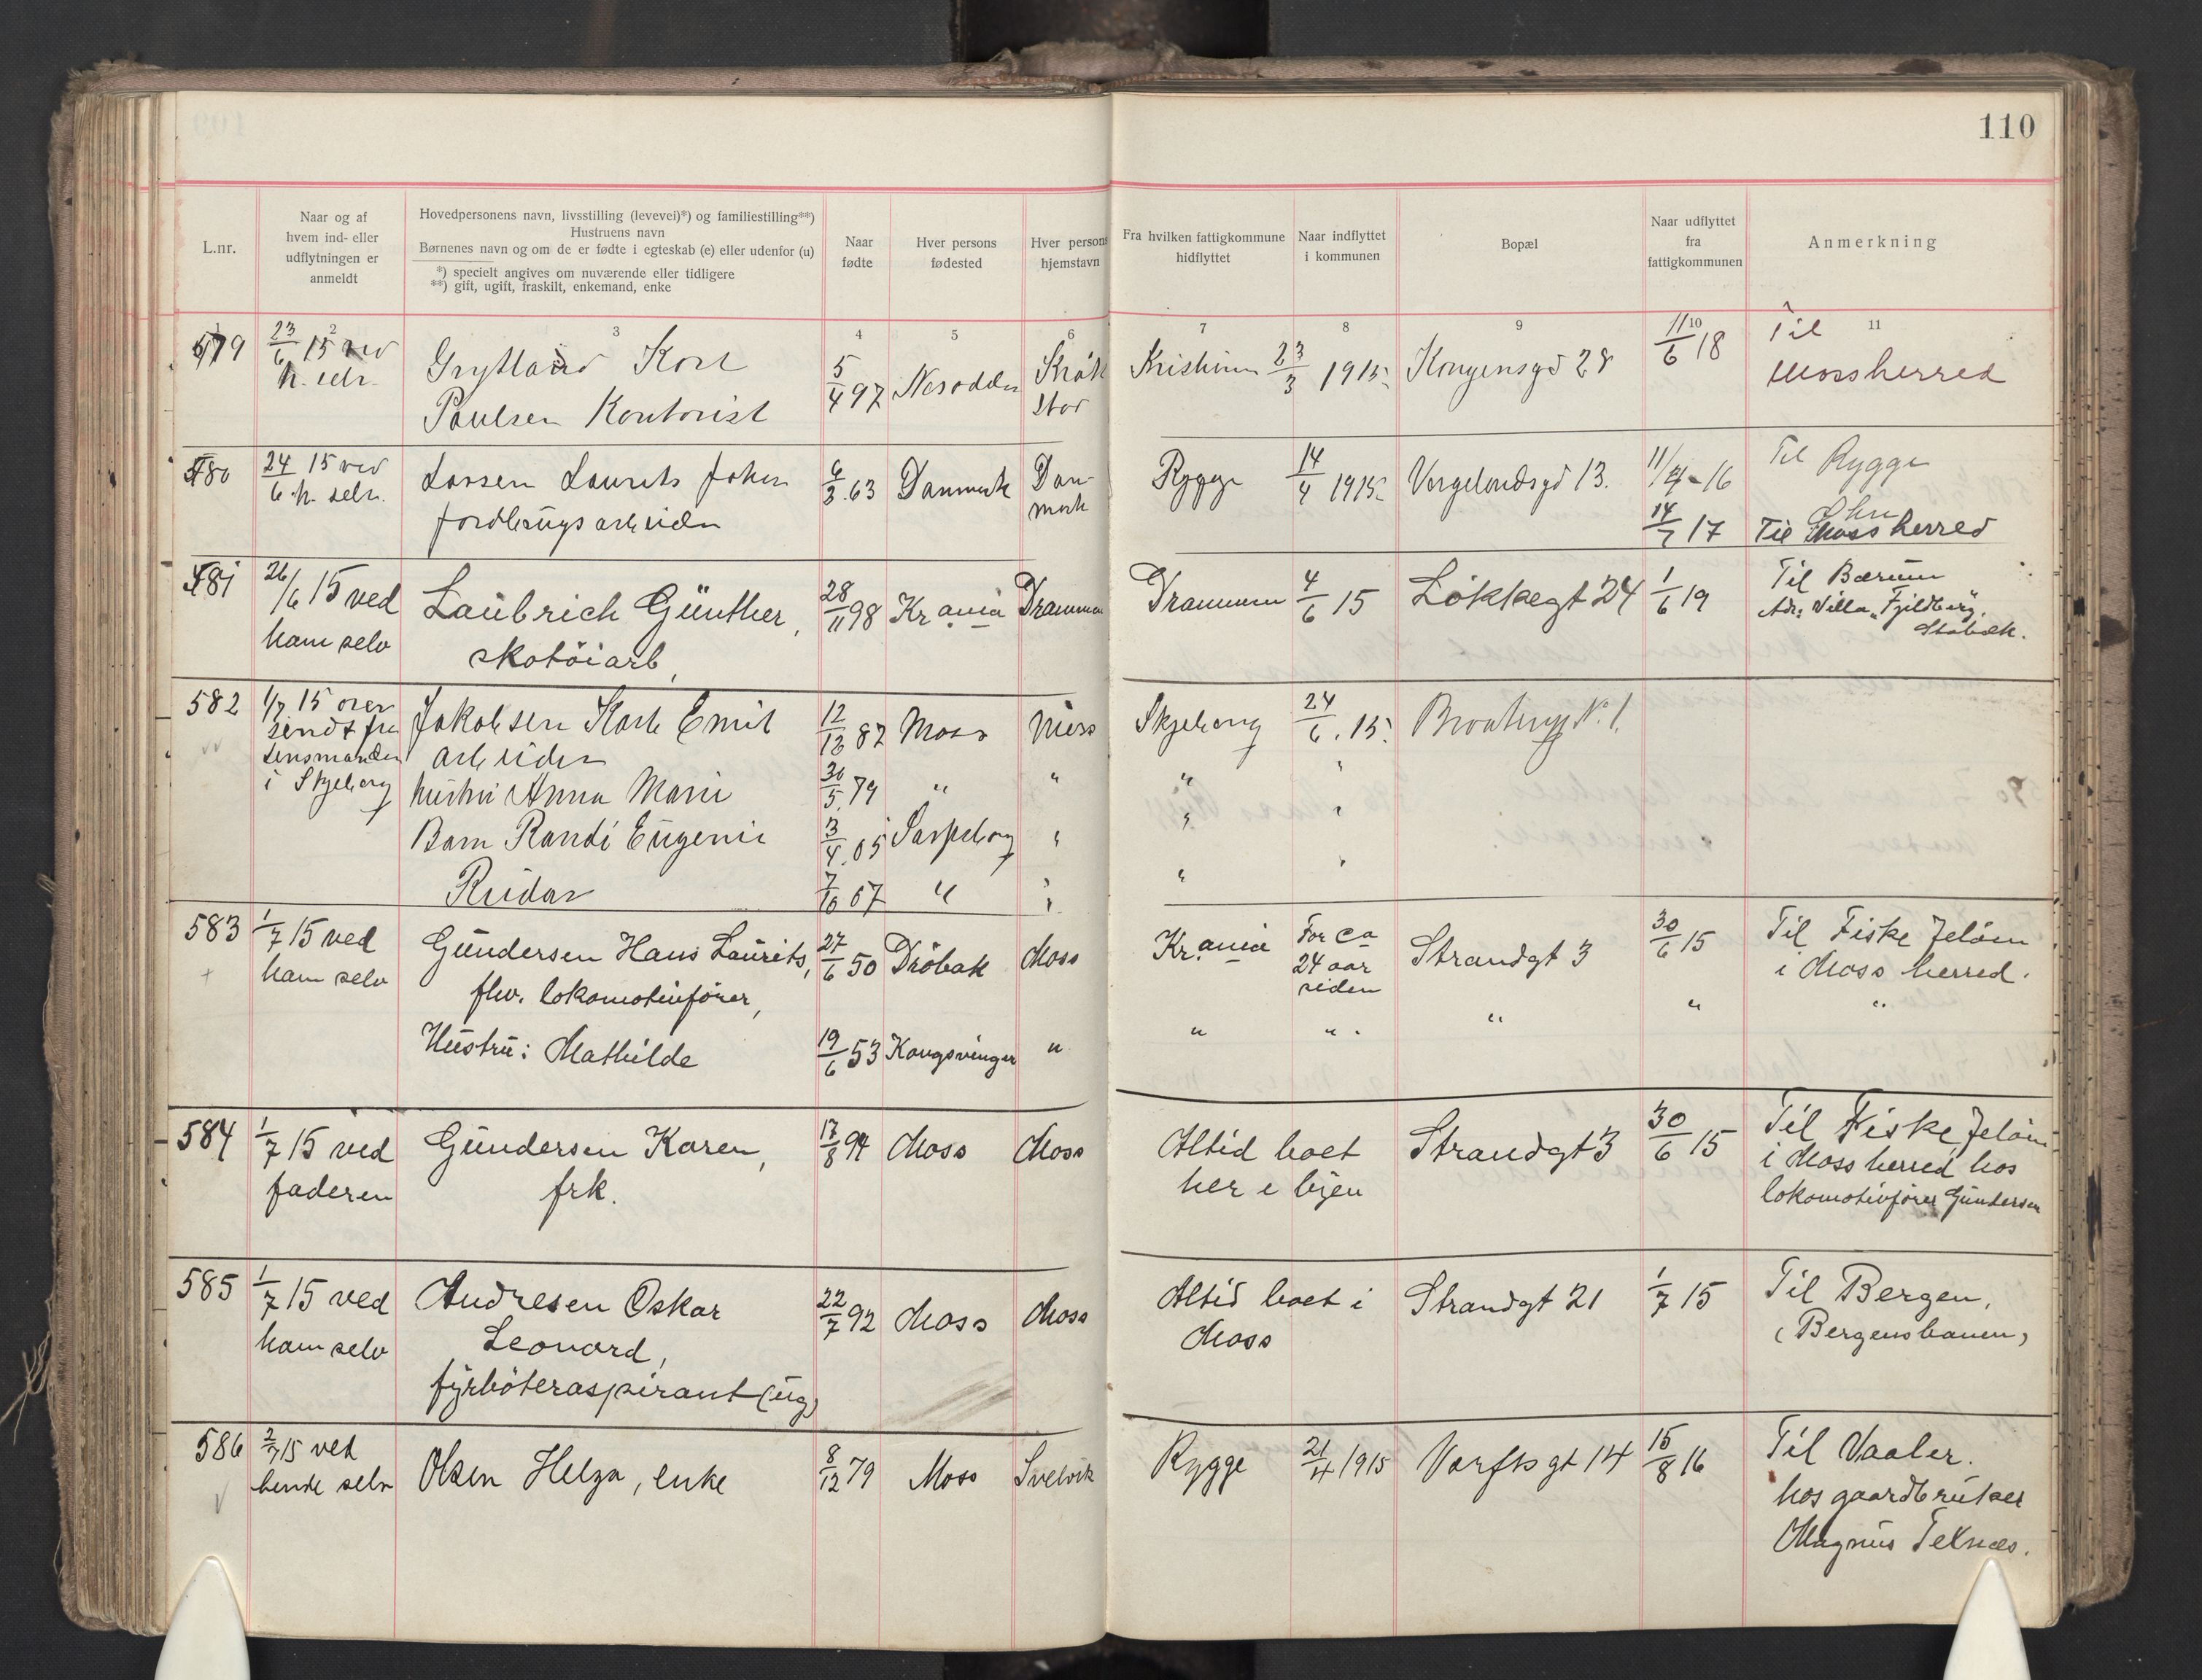 110
L.nr.
Naar og af
hvem ind- eller
udflytningen er
anmeldt
Hovedpersonens navn, livsstilling (levevei)*) og familiestilling**)
Hustruens navn
Børnenes navn og om de er fødte i egteskab (e) eller udenfor (u)
*) specielt angives om nuværende eller tidligere
**) gift, ugift, fraskilt, enkemand, enke
Naar
fødte
Hver persons
fødested
Hver persons
hjemstavn
Fra hvilken fattigkommune
hidflyttet
Naar indflyttet
i kommunen
Bopæl
Naar udflyttet
fra
fattigkommunen
Anmerkning
2 3 4 5 6 7 8 9 10 11
579 23/6 15 ved Karl 5/4 97 Nesodden 23/3 1915 Kongensgd 28 11/6 18 Til
h. selv Paulsen Kontorist Mossherred
580 24/6 15 ved Larsen Laurits Johan 6/3 63 Danmark Dan- Rygge 14/4 1915 Vergelandsgd 13. 11/4 - 16 Til Rygge
h. selv. jordbrugsarbeider mark
14/7 17 Til Moss herred
581 26/6 15 ved Laubrich Günther, 28/11 98 Kr.ania Drammen Drammen 4/6 15 Løkkegt 24 1/6 19 Til Bærum
ham selv skotøiarb, Adr: Villa "Fjeldberg",
Stabæk.
582 1/7 15 over Jakobsen Karl Emil 12/12 87 Moss Moss Skjeberg 24/6. 15.
sendt fra arbeider
lensmanden
i Skjeberg hustru Anna Marie 30/5. 79 " " " "
Barn Randi Eugenie 3/4. 05 Sarpsborg " " "
Reidar 7/10 07 " " " "
583 1/7 15 ved Gundersen Hans Laurits, 27/6 50 Drøbak Moss Kr.ania For ca Strandgt 3 30/6 15 Til Fiske Jeløen
ham selv flv. lokomotivfører, 24 aar i Moss herred.
siden
Hustru: Mathilde 19/6 53 Kongsvinger " " " " " "
584 1/7 15 ved Gundersen Karen, 17/8 94 Moss Moss Altid boet Strandgt 3 30/6 15 Til Fiske Jeløen
faderen frk. her i byen i Moss herred hos
lokomotivfører Gundersen
585 1/7 15 ved Andresen Oskar 22/7 92 Moss Moss Altid boet i Strandgt 21 1/7 15 Til Bergen,
ham selv Leonard, Moss (Bergensbanen)
fyrbøteraspirant (ug)
586 2/7 15 ved Olsen Helga, enke 8/12 79 Moss Svelvik Rygge 21/4 1915 Varftsgt 14 15/8 16 Til Vaaler.
hende selv hos gaardbruker
Magnus Teknæs.